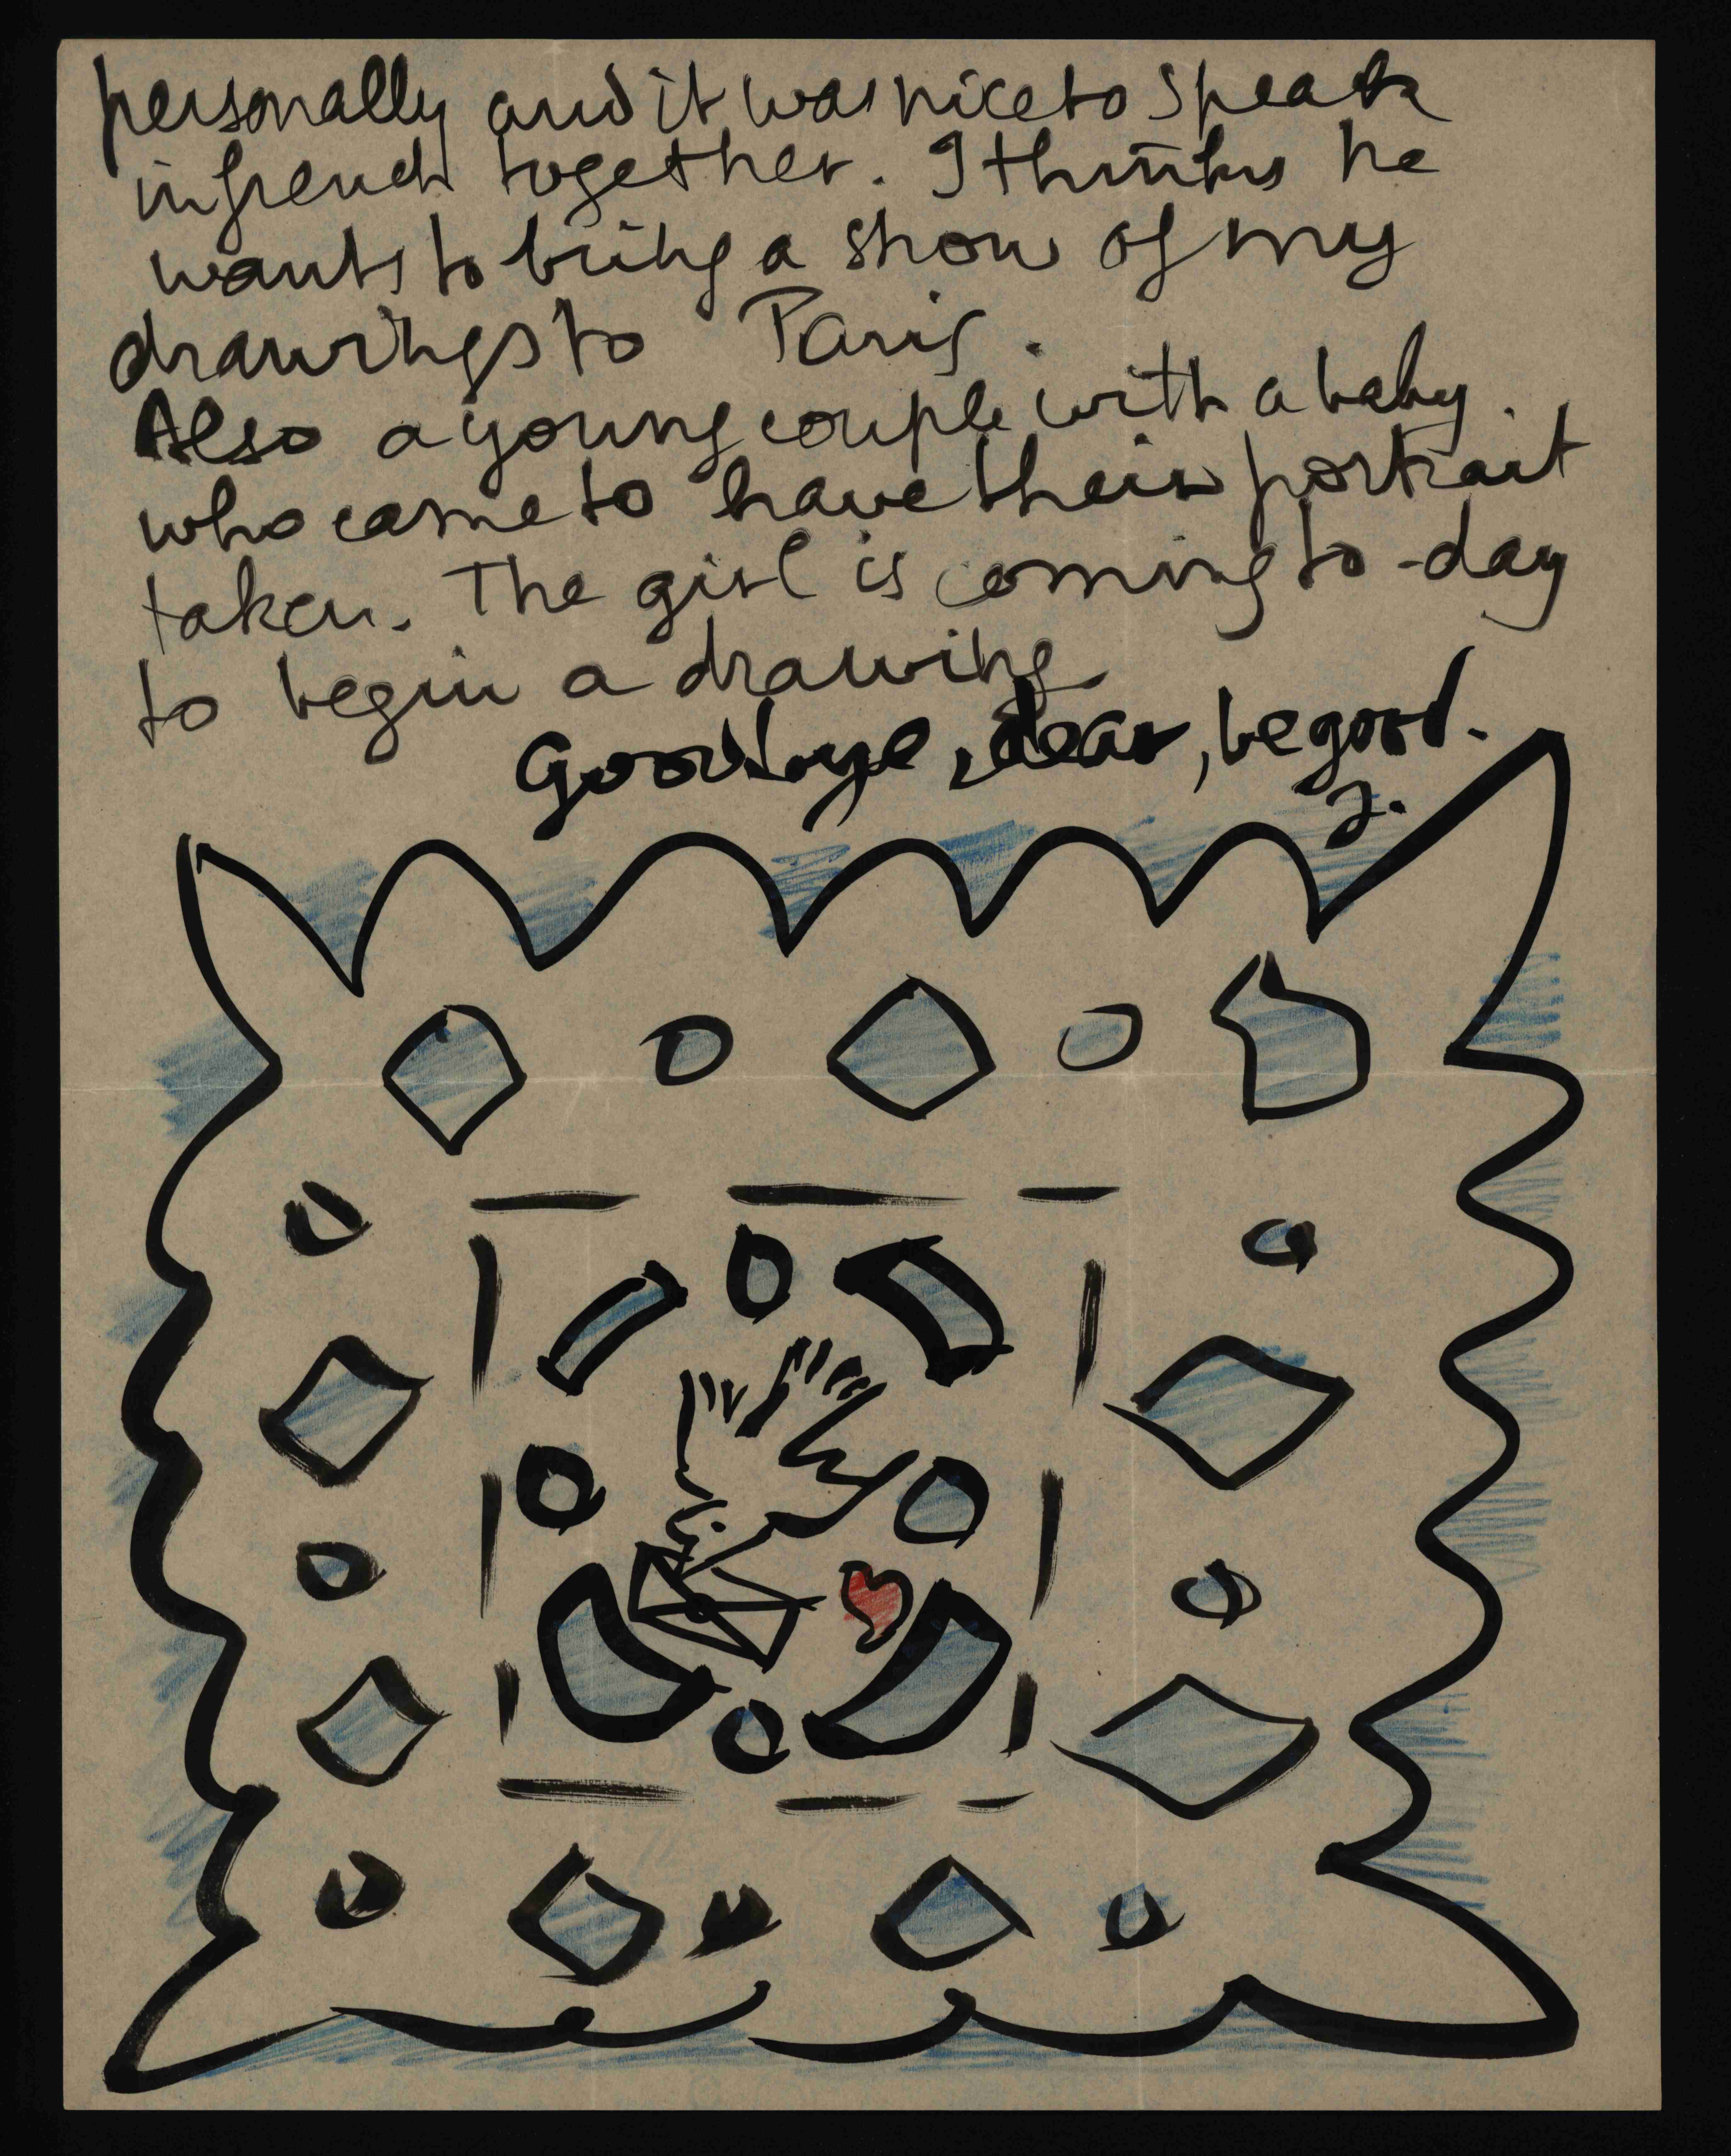 personally and it was nice to speak
in french together. I thinks he
wants to bring a show of my
drawings to Paris.
Also a young couple with a baby.
who came to have their portrait
taken. The girl is coming to-day
to begin a drawing
Goodbye, dear, be good.